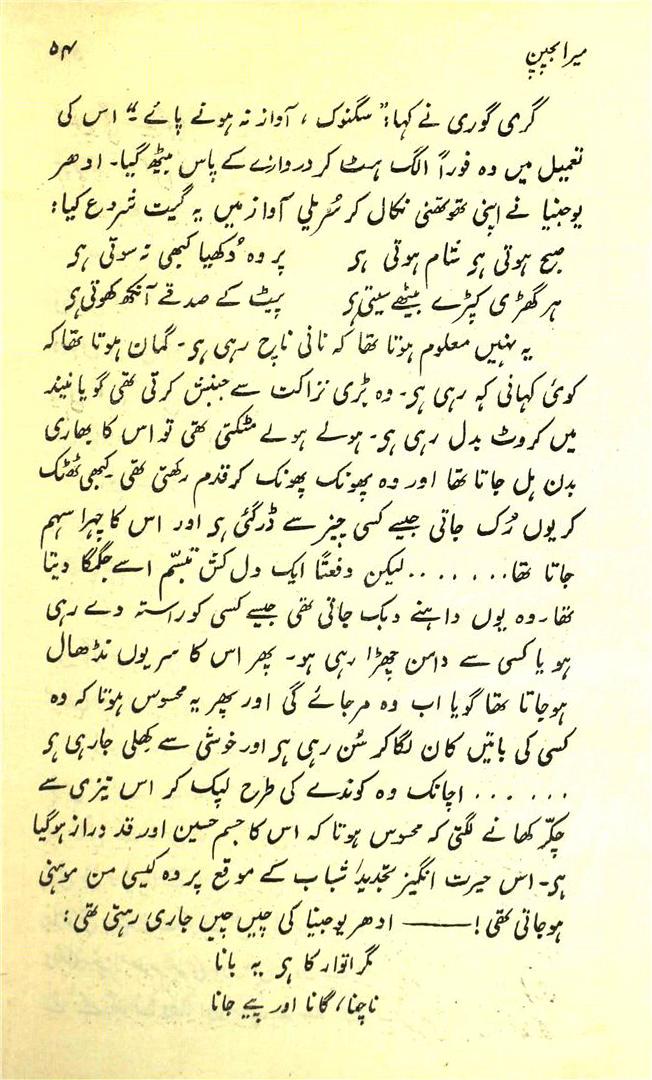 میرا بچپن ۵۴
گری گوری نے کہا: "سگنوک، آواز نہ ہونے پائے" اس کی
تعمیل میں وہ فوراً الگ ہٹ کر دروازے کے پاس بیٹھ گیا۔ ادھر
یوجنیا نے اپنی تھوتھنی نکال کر سُریلی آواز میں یہ گیت شروع کیا:
صبح ہوتی ہی شام ہوتی ہی پر وہ دُکھیا کبھی نہ سوتی ہی
ہر گھڑی کپڑے بیٹھے سیتی ہی پیٹ کے صدقے آنکھ کھوتی ہی
یہ نہیں معلوم ہوتا تھا کہ نانی ناچ رہی ہی۔ گمان ہوتا تھا کہ
کوئی کہانی کہہ رہی ہی۔ وہ بڑی نزاکت سے جنبش کرتی تھی گویا نیند
میں کروٹ بدل رہی ہی۔ ہولے ہولے مٹکتی تھی تو اس کا بھاری
بدن ہل جاتا تھا اور وہ پھونک پھونک کر قدم رکھتی تھی۔ کبھی ٹھٹک
کر یوں رُک جاتی جیسے کسی چیز سے ڈر گئی ہی اور اس کا چہرا سہم
جاتا تھا....... لیکن دفعتاً ایک دل کش تبسّم اسے جگمگا دیتا
تھا۔ وہ یوں داہنے دبک جاتی تھی جیسے کسی کو راستہ دے رہی
ہو یا کسی سے دامن چھڑا رہی ہو۔ پھر اس کا سر یوں نڈھال
ہو جاتا تھا گویا اب وہ مر جائے گی اور پھر یہ محسوس ہوتا کہ وہ
کسی کی باتیں کان لگا کر سُن رہی ہی اور خوشی سے کھلی جارہی ہی
...... اچانک وہ کوندے کی طرح لپک کر اس تیزی سے
چکّر کھانے لگتی کہ محسوس ہوتا کہ اس کا جسم حسین اور قد دراز ہوگیا
ہی۔ اس حیرت انگیز تجدیدِ شباب کے موقع پر وہ کیسی من موہنی
ہو جاتی تھی! —— ادھر یوجینیا کی چیں چیں جاری رہتی تھی:
مگر اتوار کا ہی یہ بانا
ناچنا، گانا اور پیے جانا